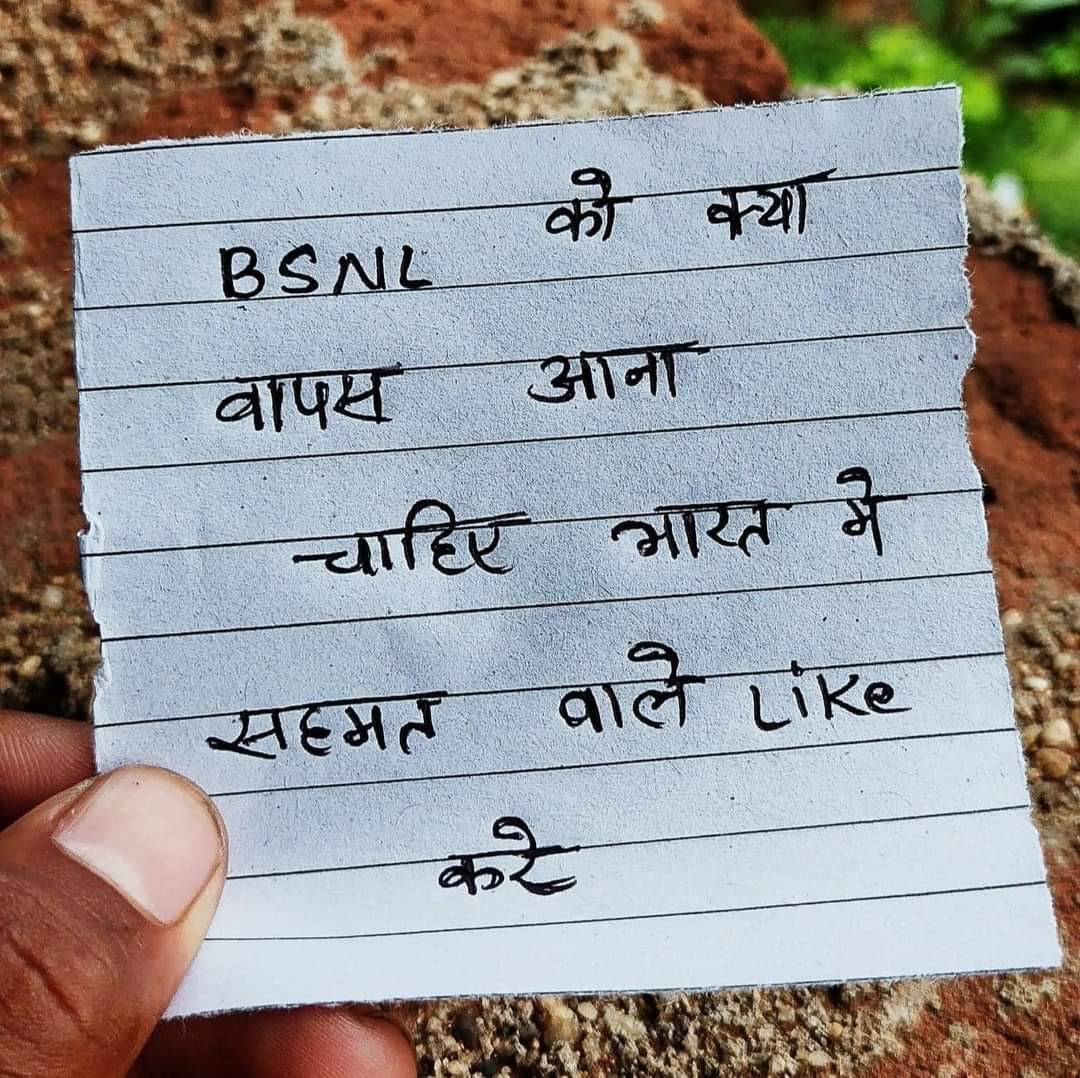 BSNL को क्या
वापस आना
चाहिए भारत मे
सहमत वाले Like
करे